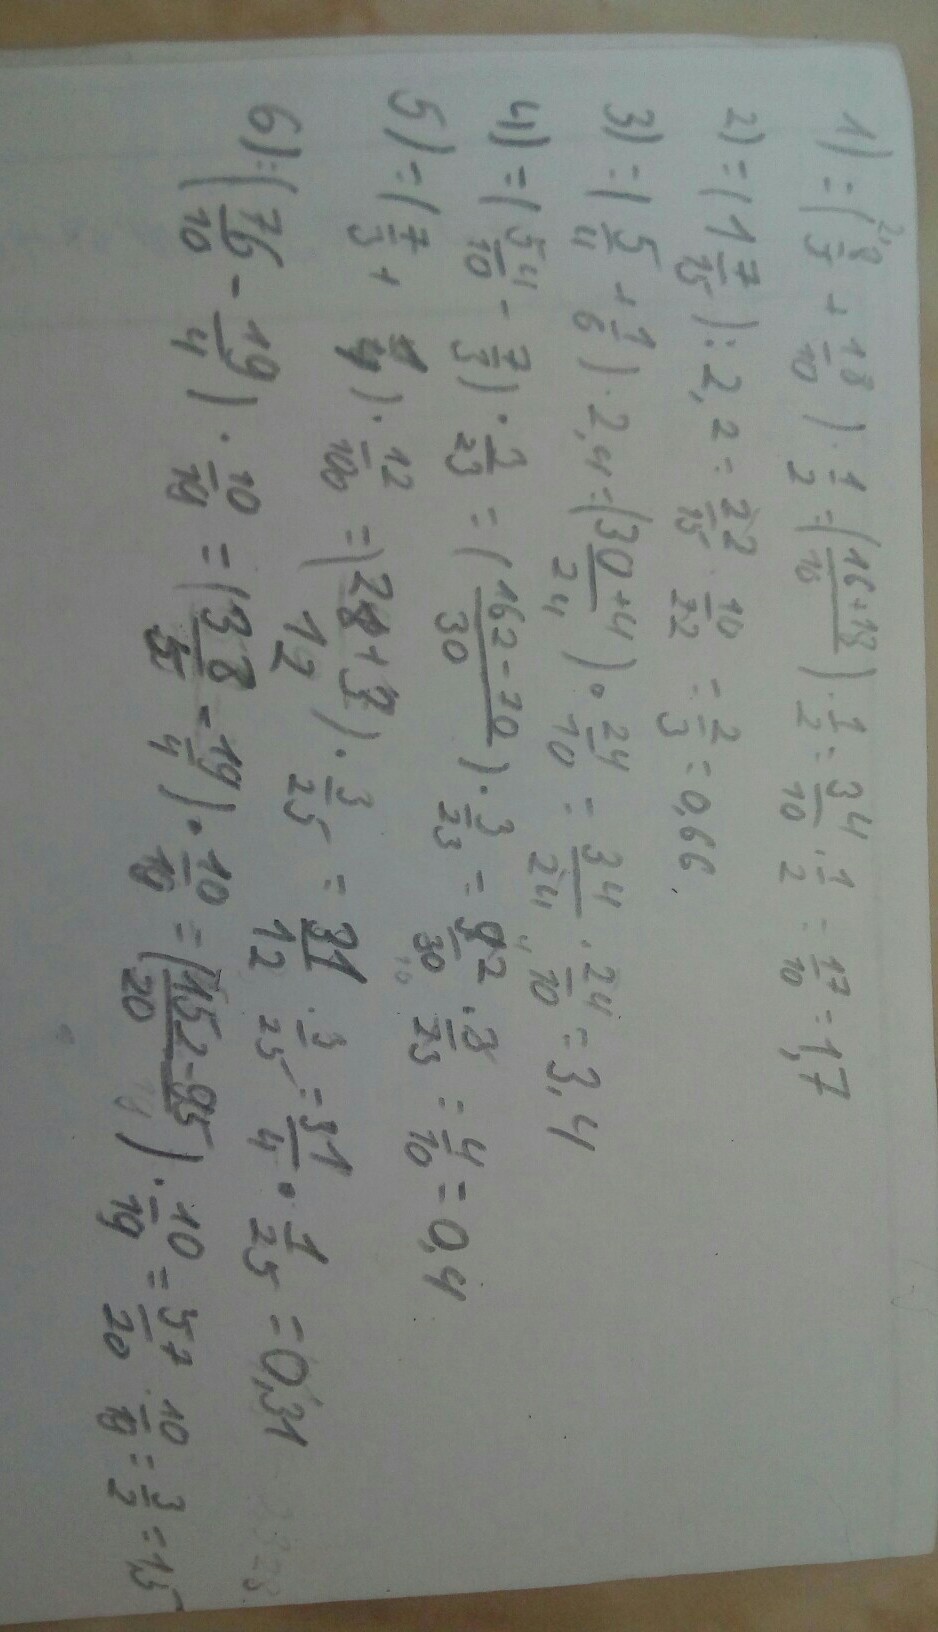 1) = (8/5 + 18/10) · 1/2 = (16+18/10) · 1/2 = 34/10 · 1/2 = 17/10 = 1,7
2) = (1 7/15) : 2,2 = 22/15 · 10/22 = 2/3 = 0,66
3) = (5/4 + 1/6) · 2,4 = (30+4/24) · 24/10 = 34/24 · 24/10 = 3,4
4) = (54/10 - 7/3) · 3/23 = (162-70/30) · 3/23 = 92/30 · 3/23 = 4/10 = 0,4
5) = (7/3 + 1/4) · 12/100 = (28+3/12) · 3/25 = 31/12 · 3/25 = 31/4 · 1/25 = 0,31
6) = (76/10 - 19/4) · 10/19 = (38/5 - 19/4) · 10/19 = (152-95/20) · 10/19 = 57/20 · 10/19 = 3/2 = 1,5